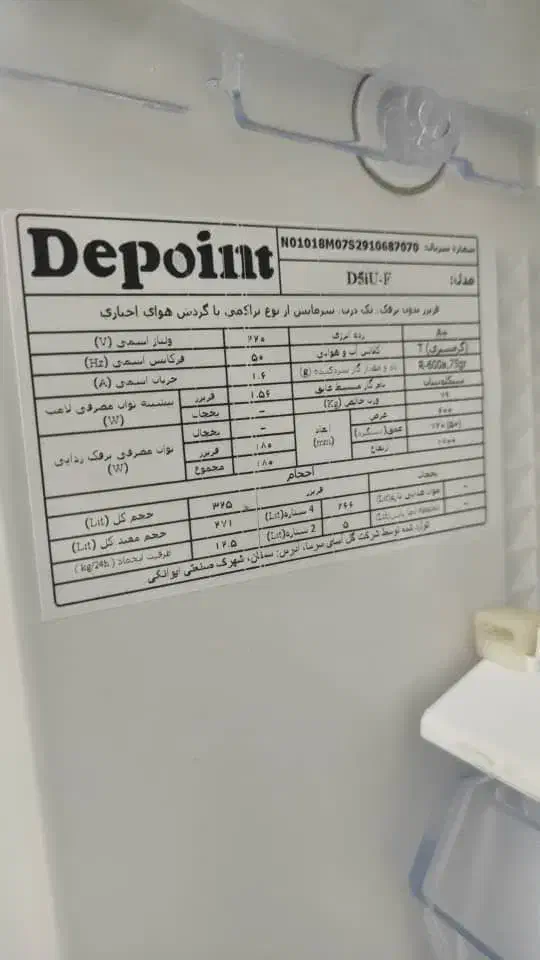 Depoint
شماره سریال: N01018M07S2910687070
مدل: D5iU-F
فریزر بدون برفک، تک درب، سرمایش از نوع تراکمی با گردش هوای اجباری
ولتاژ اسمی (V) ۲۲۰
رده انرژی A+
فرکانس اسمی (Hz) ۵۰
کلاس آب و هوایی (گرمسیری) T
جریان اسمی (A) ۱.۶
نام و مقدار گاز سردکننده (g) R-600a,75gr
بیشینه توان مصرفی لامپ (W) فریزر ۱.۵۶
یخچال -
نام گاز منبسط عایق سیکلوپنتان
وزن خالص (Kg)
توان مصرفی برفک زدایی (W) یخچال -
فریزر ۱۸۰
مجموع ۱۸۰
ابعاد (mm) عرض ۶۰۰
عمق (با دستگیره)
ارتفاع
احجام
فریزر
یخچال
حجم کل (Lit) ۳۲۵
4 ستاره (Lit) ۲۶۶
حجم مفید کل (Lit) ۲۷۱
2 ستاره (Lit) ۵
ظرفیت انجماد (kg/24h) ۱۲.۵
-
-
تولید شده توسط شرکت گل آسای سرما، آدرس: سمنان، شهرک صنعتی ایوانکی